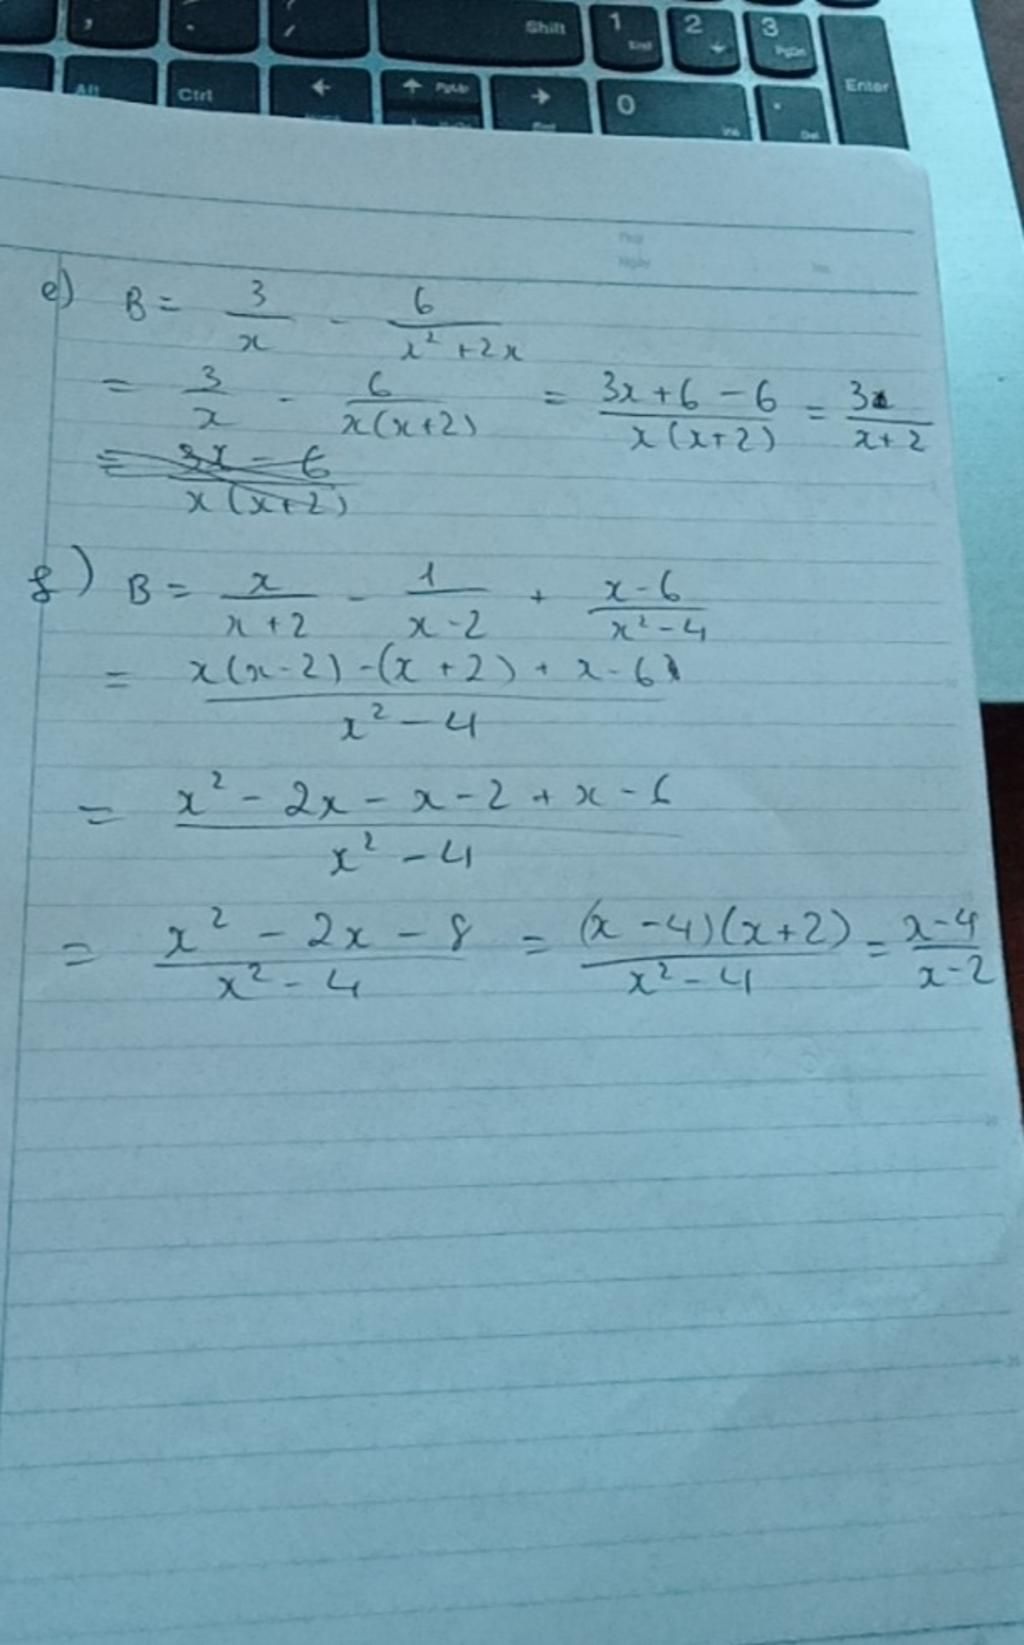 , . / Shift 1 End 2 3 PgDn
Alt Ctrl ← ↑ PgUp → 0 Ins . Del Enter
Thứ
Ngày No
e) B = 3/x - 6/(x² + 2x)
= 3/x - 6/(x(x+2)) = (3x + 6 - 6)/(x(x+2)) = 3/(x+2)
= (3x - 6)/(x(x+2))
f) B = x/(x+2) - 1/(x-2) + (x-6)/(x²-4)
= (x(x-2) - (x+2) + x-6)/(x²-4)
= (x² - 2x - x - 2 + x - 6)/(x² - 4)
= (x² - 2x - 8)/(x² - 4) = ((x-4)(x+2))/(x²-4) = (x-4)/(x-2)